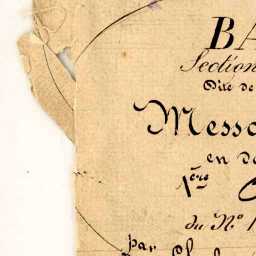 BA
Section
Dite de
Messo
en de
1ère
du N° 1
par